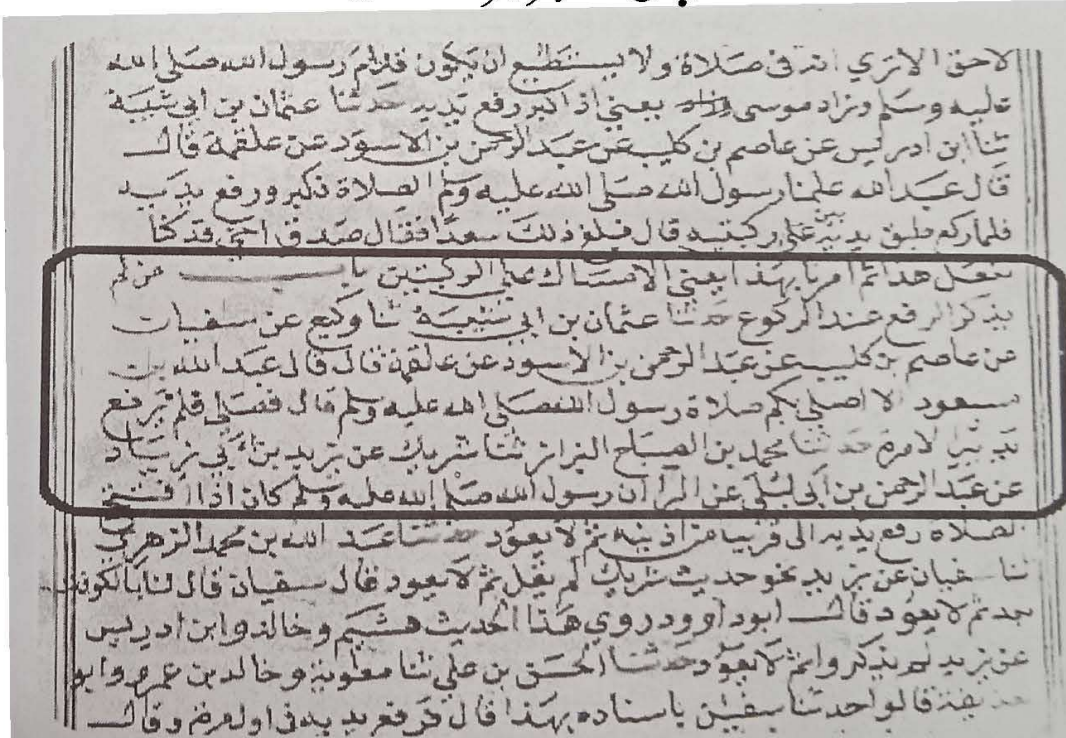 لاحق الا تري انه فى صلاة ولا يستطيع ان يكون قدام رسول الله صلى الله
عليه وسلم وزاد موسى يعني اذا كبر رفع يديه حدثنا عثمان بن ابي شيبة
ثنا ابن ادريس عن عاصم بن كليب عن عبد الرحمن بن الاسود عن علقمة قال
قال عبد الله علمنا رسول الله صلى الله عليه وسلم الصلاة فكبر ورفع يديه
فلما ركع طبق يديه بين ركبتيه قال فبلغ ذلك سعدا فقال صدق اخي قد كنا
نفعل هذا ثم امرنا بهذا يعني الامساك على الركبتين باب من لم
يذكر الرفع عند الركوع حدثنا عثمان بن ابي شيبة ثنا وكيع عن سفيان
عن عاصم بن كليب عن عبد الرحمن بن الاسود عن علقمة قال قال عبد الله بن
مسعود الا اصلي بكم صلاة رسول الله صلى الله عليه وسلم قال فصلى فلم يرفع
يديه الا مرة حدثنا محمد بن الصباح البزاز ثنا شريك عن يزيد بن ابي زياد
عن عبد الرحمن بن ابي ليلى عن البرا ان رسول الله صلى الله عليه وسلم كان اذا افتتح
الصلاة رفع يديه الى قريب من اذنيه ثم لا يعود حدثنا عبد الله بن محمد الزهري
ثنا سفيان عن يزيد نحو حديث شريك لم يقل ثم لا يعود قال سفيان قال لنا بالكوفة
بعد ثم لا يعود قال ابو داوود روي هذا الحديث هشيم وخالد وابن ادريس
عن يزيد لم يذكروا ثم لا يعود حدثنا الحسن بن علي ثنا معاوية وخالد بن عمرو وابو
حذيفة قالوا حدثنا سفين باسناده بهذا قال فرفع يديه فى اول مرة وقال